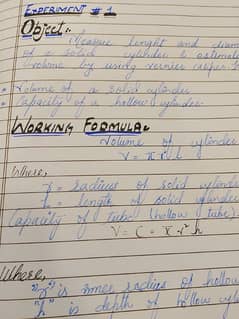 EXPERIMENT # 1
Object:
Measure lenght and diam
of a solid cylinder & estimate
volume by using vernier caliper
Volume of a solid cylinder
Capacity of a hollow cylinder
WORKING FORMULA:
Volume of cylinder
V = π r² h
Where,
r = radius of solid cylinder
h = length of solid cylinder
Capacity of tube (hollow tube)
V = C = π r² h
Where,
"r" is inner radius of hollow
"h" is depth of hollow cyl